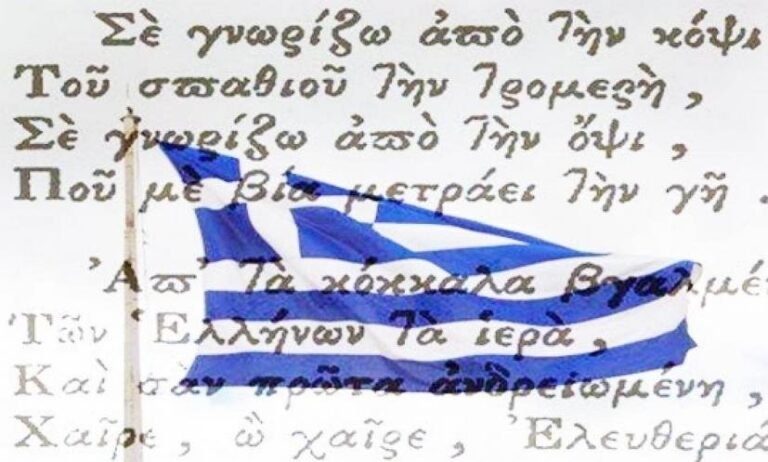 Σὲ γνωρίζω ἀπὸ τὴν κόψι
Τοῦ σπαθιοῦ τὴν τρομερὴ,
Σὲ γνωρίζω ἀπὸ τὴν ὄψι,
Ποῦ μὲ βία μετράει τὴν γῆ.
Ἀπ' τὰ κόκκαλα βγαλμέ
Τῶν Ἑλλήνων τὰ ἱερὰ,
Καὶ σὰν πρῶτα ἀνδρειωμένη,
Χαῖρε, ὦ χαῖρε, Ἐλευθεριά